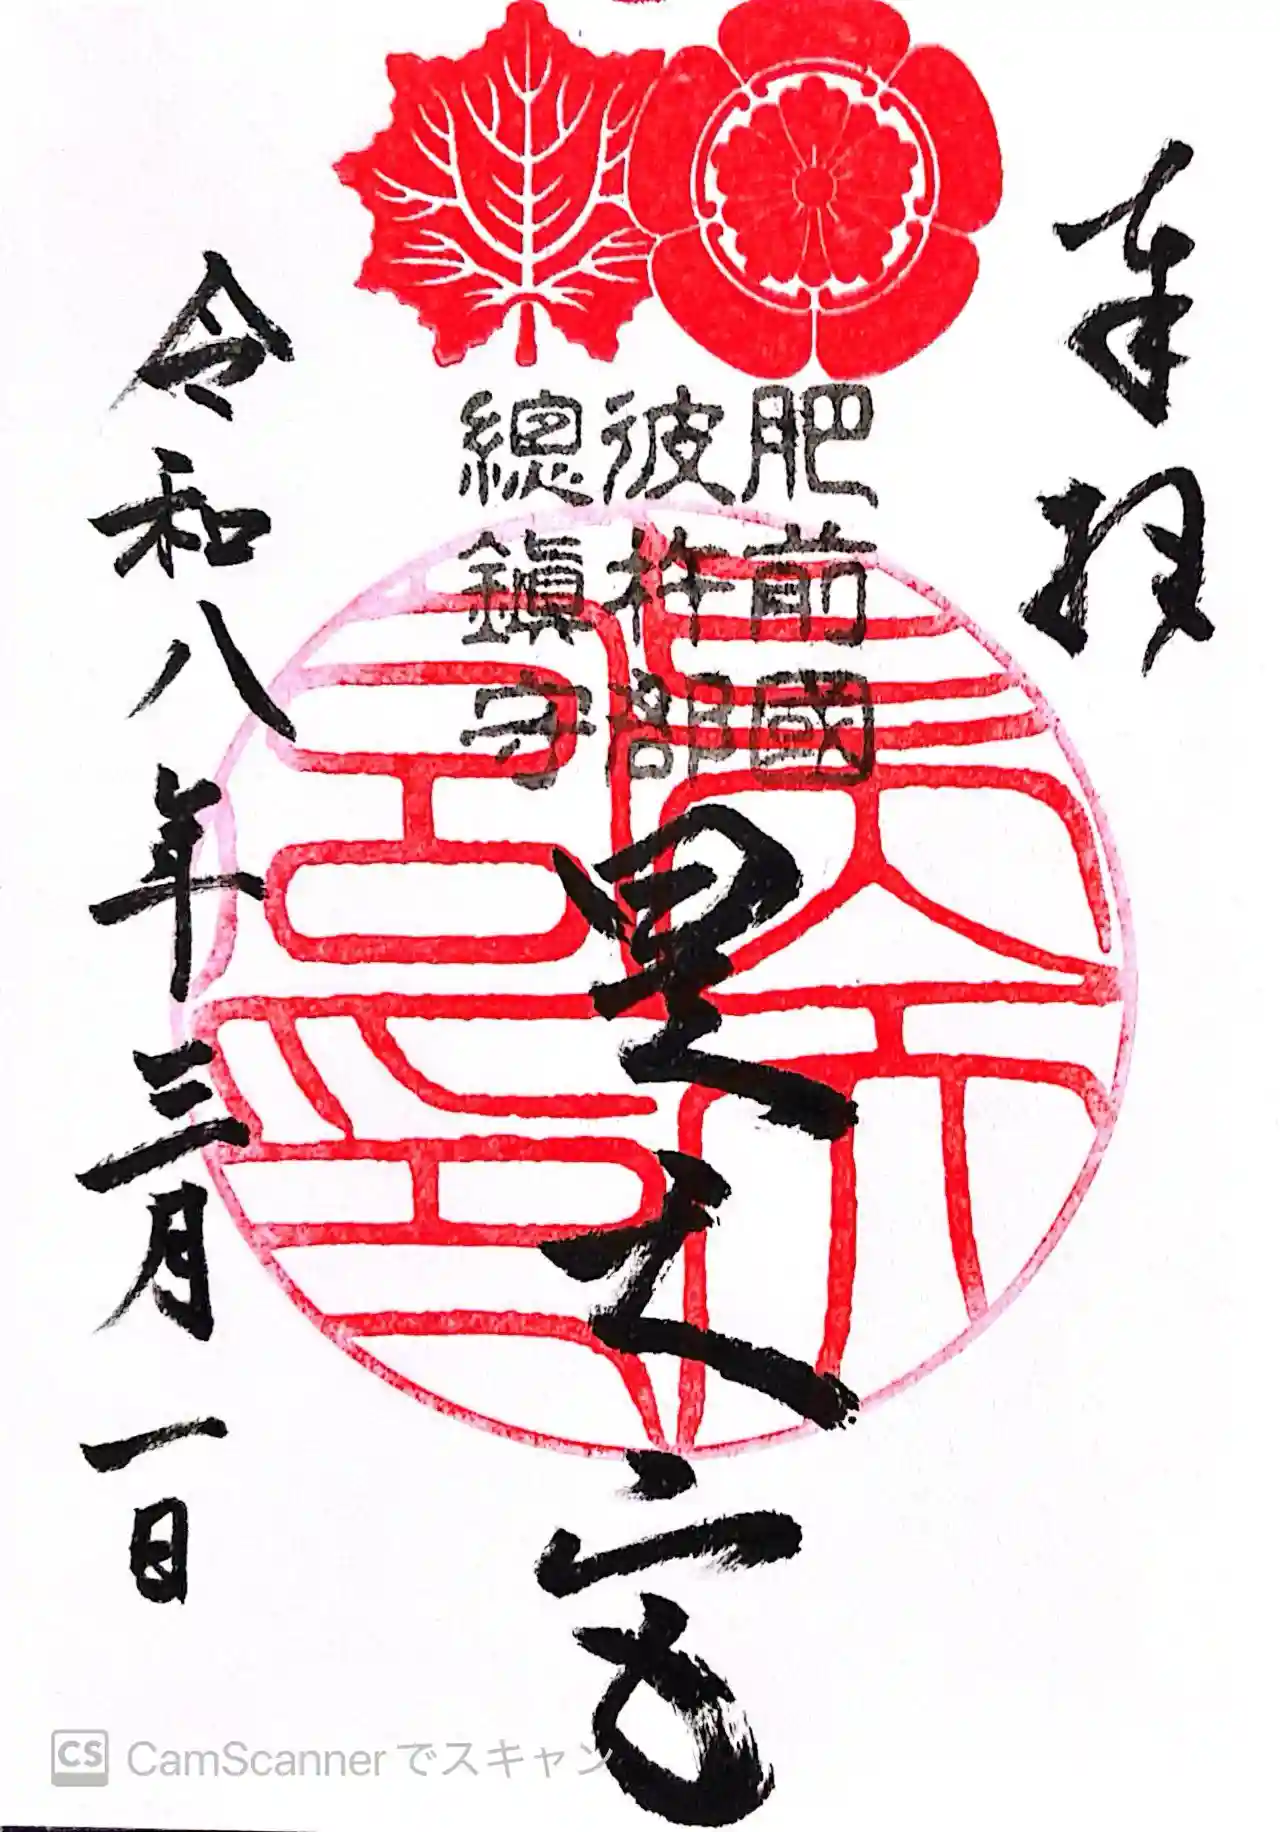 奉拝
肥前國
彼杵郡
總鎮守
昊天宮
昊天宮印
令和八年三月一日
CS CamScannerでスキャン